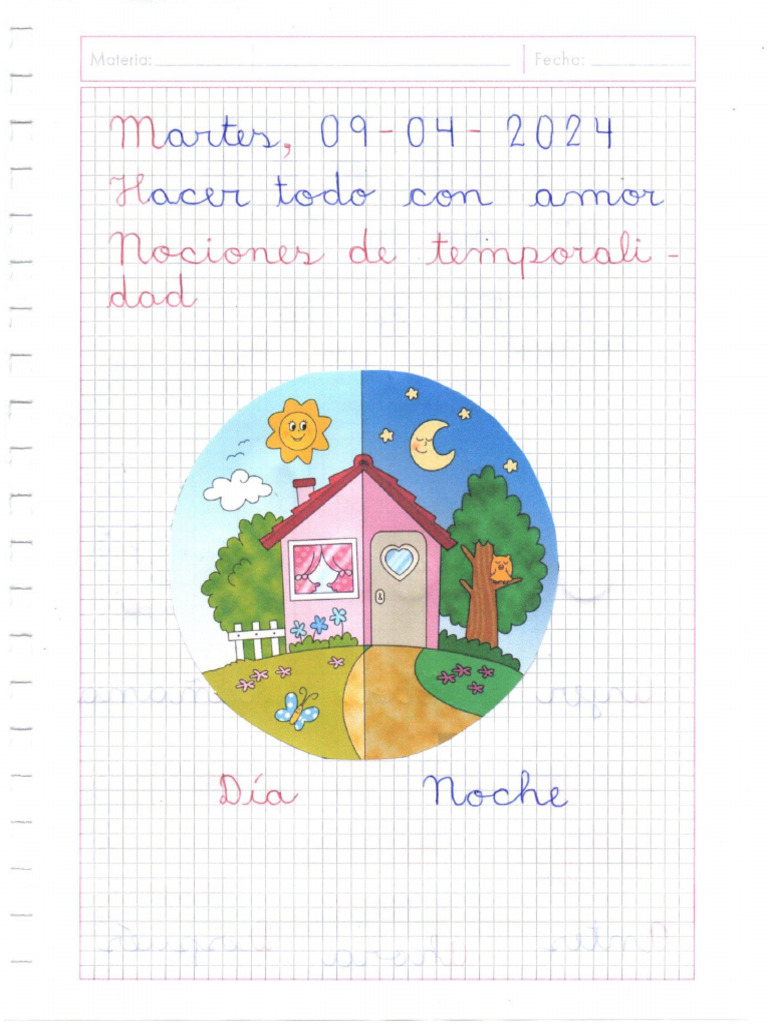 Materia: Fecha:
Martes, 09-04-2024
Hacer todo con amor
Nociones de temporali-
dad
Día Noche